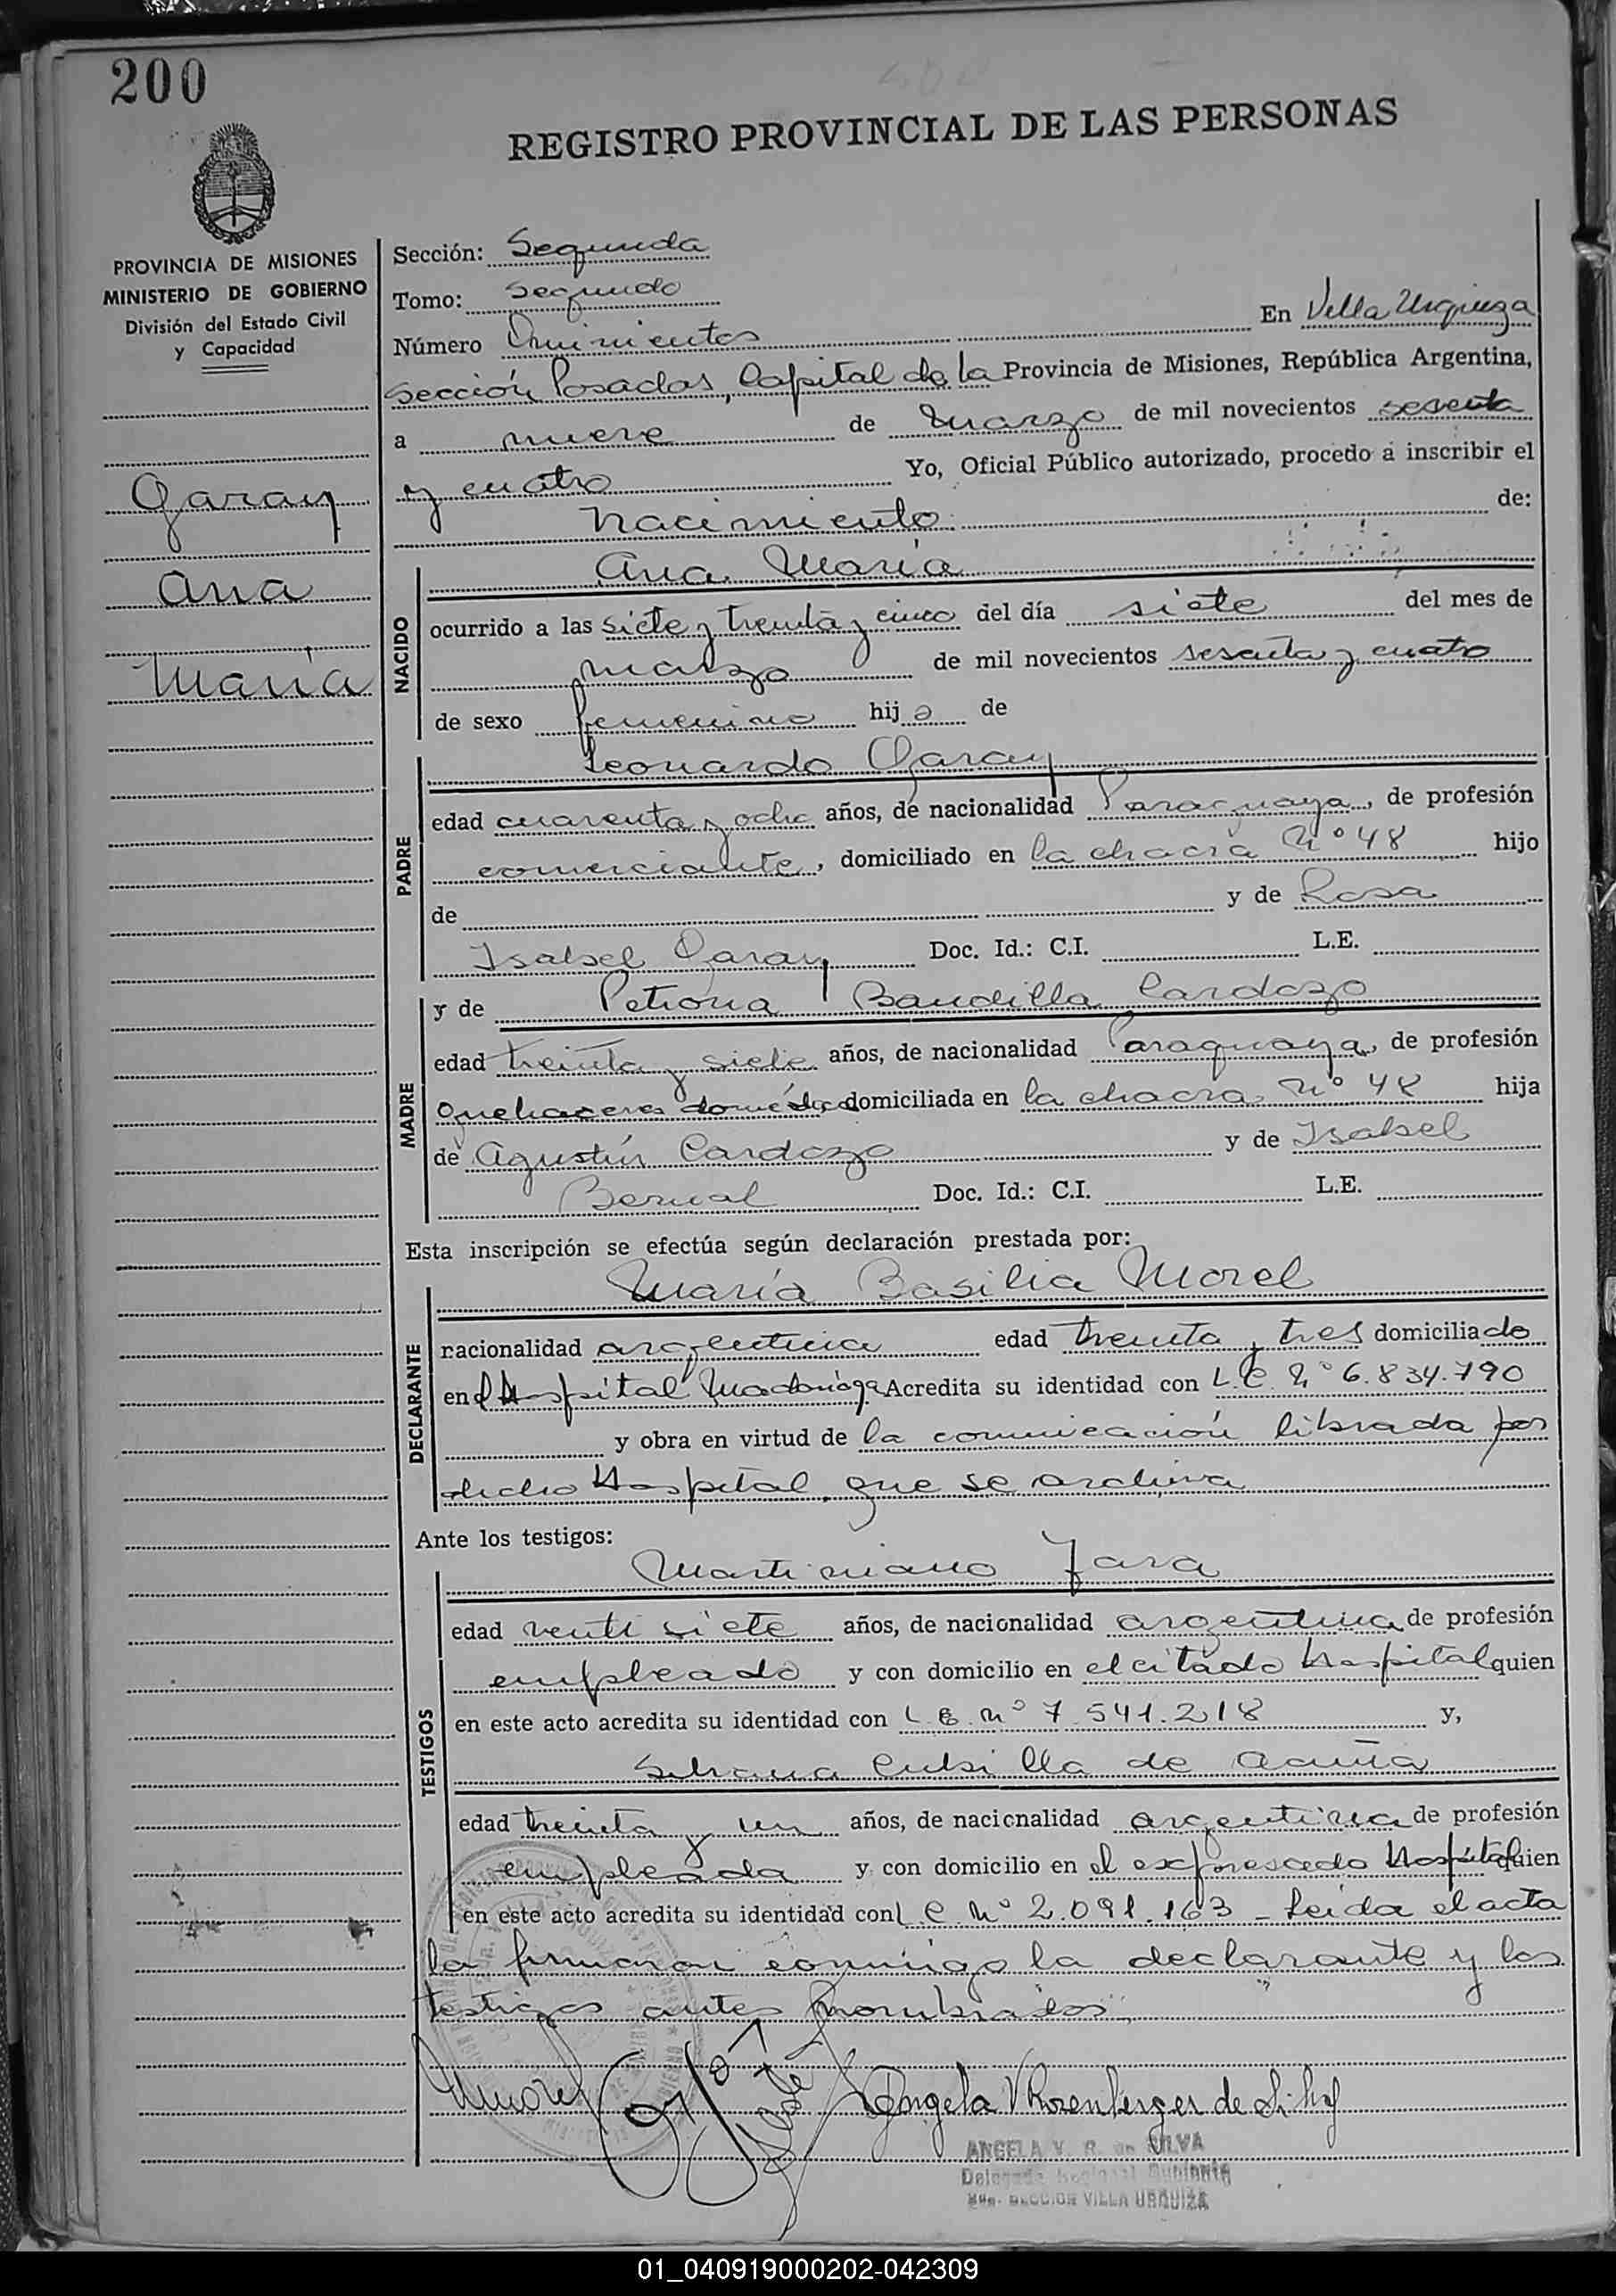 200
REGISTRO PROVINCIAL DE LAS PERSONAS
PROVINCIA DE MISIONES
MINISTERIO DE GOBIERNO
División del Estado Civil
y Capacidad
Garay
Ana
María
Sección: Segunda
Tomo: Segundo
Número En Villa Urquiza
sección Posadas, Capital de la Provincia de Misiones, República Argentina,
a nueve de marzo de mil novecientos sesenta
y cuatro Yo, Oficial Público autorizado, procedo a inscribir el
nacimiento de:
NACIDO
Ana María
ocurrido a las siete y treinta y cinco del día siete del mes de
marzo de mil novecientos sesenta y cuatro
de sexo femenino hija de
PADRE
Leonardo Garay
edad cuarenta y ocho años, de nacionalidad Paraguaya, de profesión
comerciante, domiciliado en la chacra Nº 48 hijo
de y de Rosa
Isabel Garay Doc. Id.: C.I. L.E.
MADRE
y de Petrona Baudilla Cardozo
edad treinta y siete años, de nacionalidad Paraguaya, de profesión
Quehaceres domiciliada en la chacra Nº 48 hija
de Agustín Cardozo y de Isabel
Bernal Doc. Id.: C.I. L.E.
Esta inscripción se efectúa según declaración prestada por:
DECLARANTE
María Basilia Morel
nacionalidad argentina edad treinta y tres domiciliado
en el Hospital Madariaga Acredita su identidad con L.C. Nº 6.834.790
y obra en virtud de la comunicación librada por
dicho Hospital, que se archiva
Ante los testigos:
TESTIGOS
Martiniano Jara
edad venti siete años, de nacionalidad argentina de profesión
empleado y con domicilio en el citado Hospital quien
en este acto acredita su identidad con L.E. Nº 7.541.218 y,
de Acuña
edad treinta y un años, de nacionalidad argentina de profesión
empleada y con domicilio en el expresado Hospital quien
en este acto acredita su identidad con L.C. Nº 2.091.163 - Leída el acta
la firmaron conmigo la declarante y los
testigos antes nombrados
Morel
Angela V Rosenberger de Silva
ANGELA V. R. de SILVA
SECCION VILLA URQUIZA
01_040919000202-042309